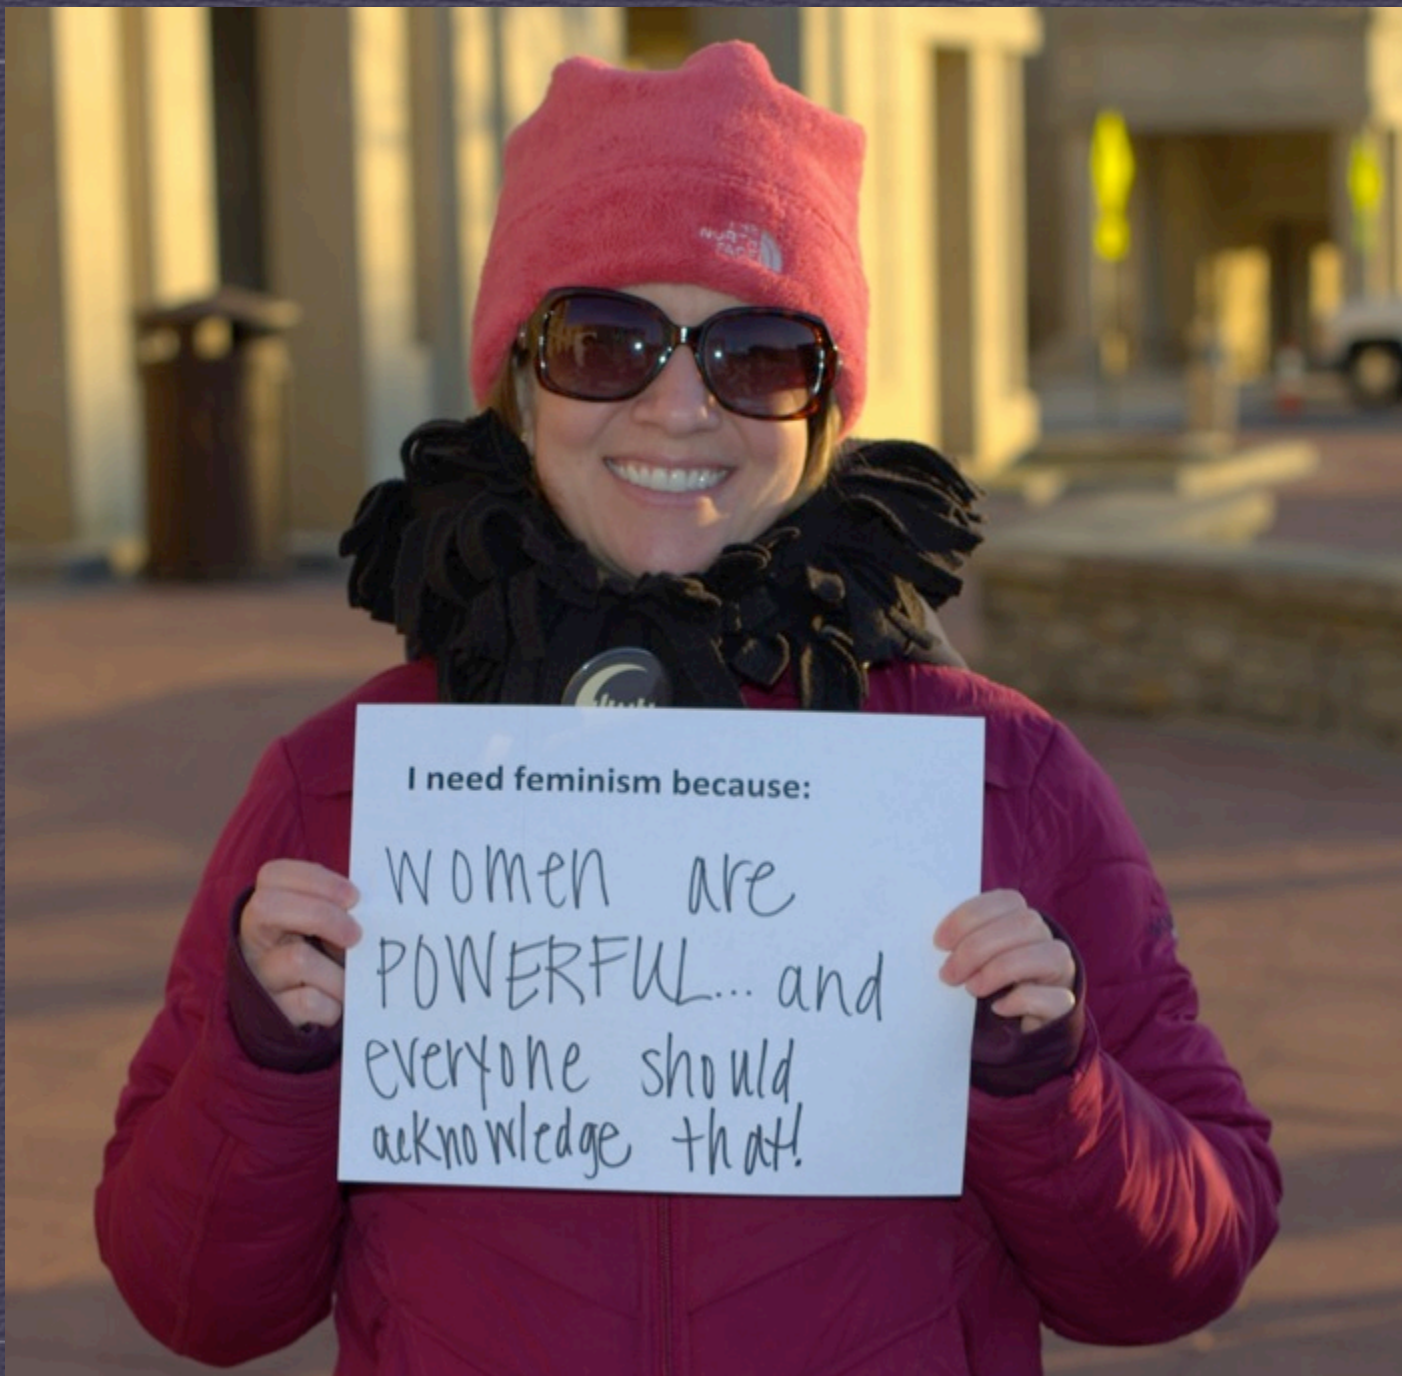 THE
NORTH
FACE
I need feminism because:
women are
POWERFUL... and
everyone should
acknowledge that!